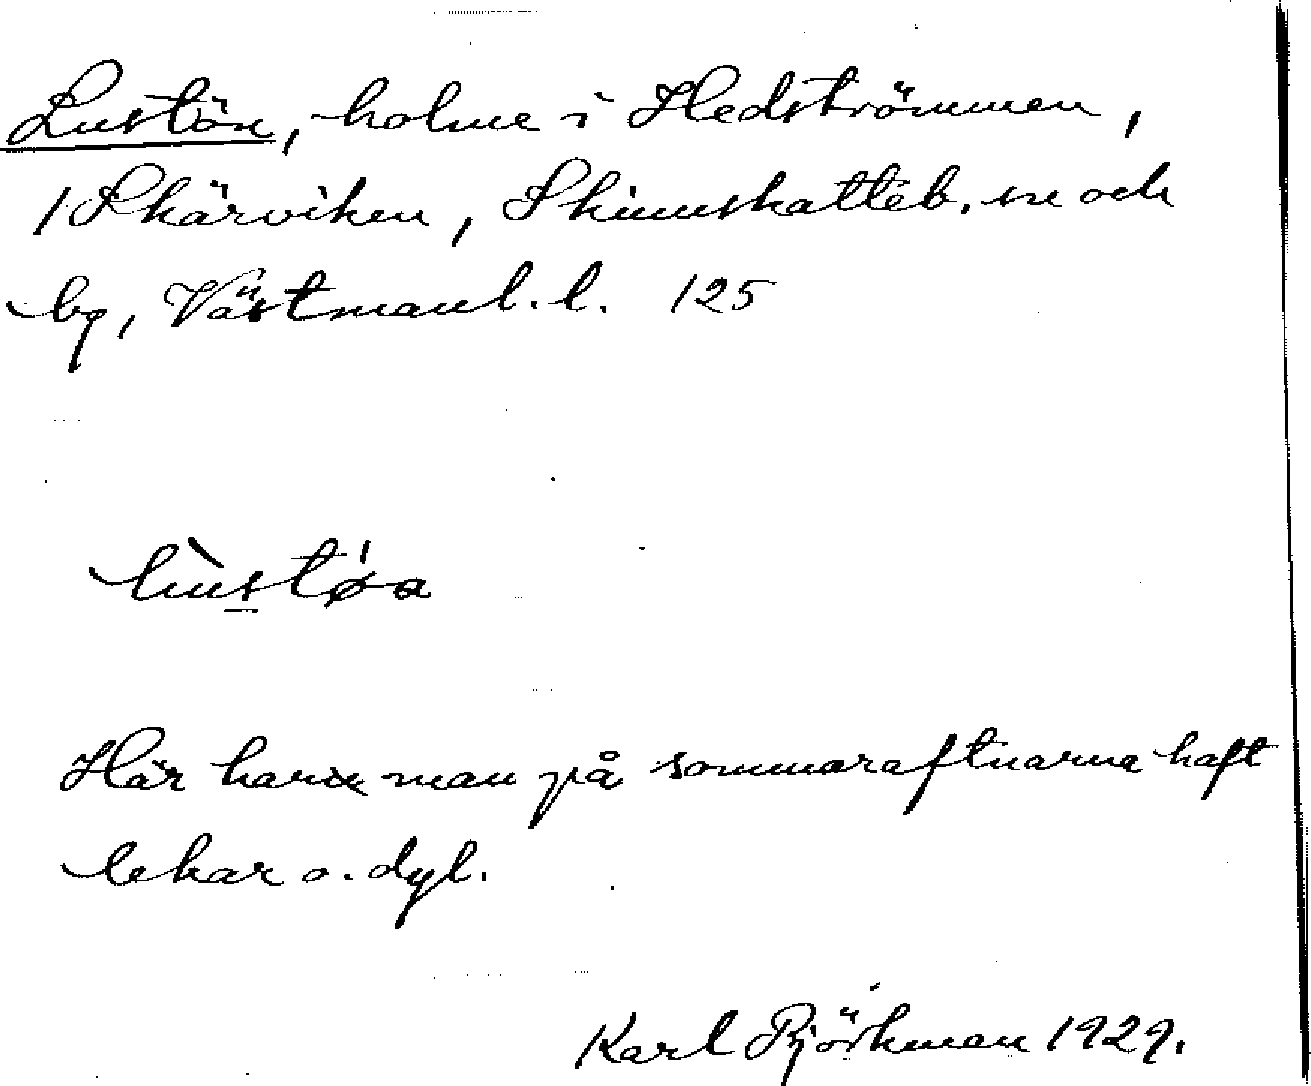 Lustön, holme i Hedströmmen,
1 Skärviken, Skinnskatteb. sn och
bg, Västmanl. l. 125
lùstǿa
Här har man på sommaraftnarna haft
lekar o. dyl.
Karl Björkman 1929.